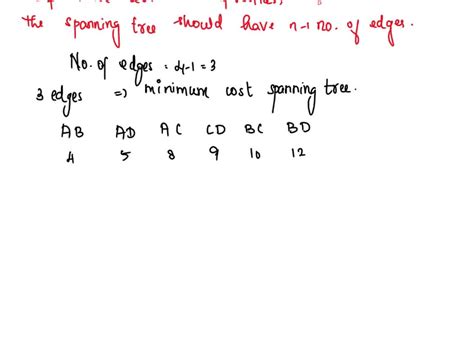 the spanning tree should have n-1 no. of edges.
No. of edges = 4-1 = 3
3 edges => minimum cost spanning tree.
AB AD AC CD BC BD
4 5 8 9 10 12